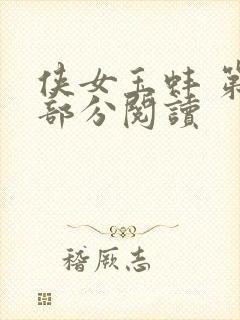 侠女玉蚌 第
部分閱讀
稽厥志